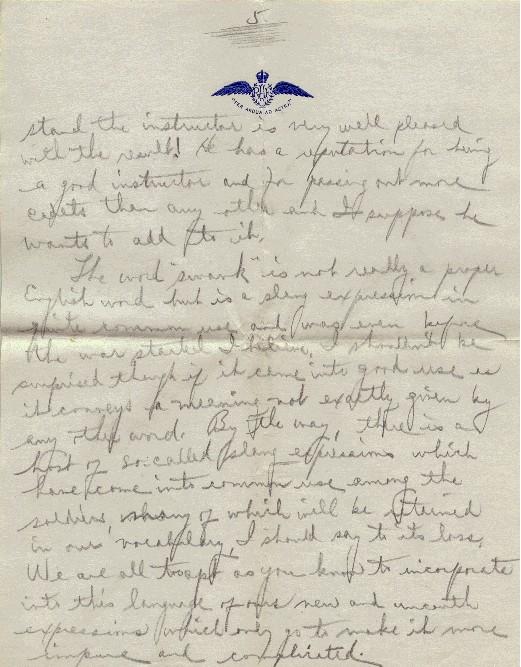 5.
RFC
"PER ARDUA AD ASTRA"
stand the instructor is very well pleased
with the result! He has a reputation for being
a good instructor and for passing out more
cadets than any other and I suppose he
wants to add to it.
The word "swank" is not really a proper
English word but is a slang expression in
quite common use and was even before
the war started I believe. I shouldn't be
surprised though if it came into good use as
it conveys a meaning not exactly given by
any other word. By the way, there is a
host of so-called slang expressions which
have come into common use among the
soldiers many of which will be retained
in our vocabulary, I should say to its loss.
We are all too apt as you know to incorporate
into this language of ours new and uncouth
expressions which only go to make it more
impure and complicated.